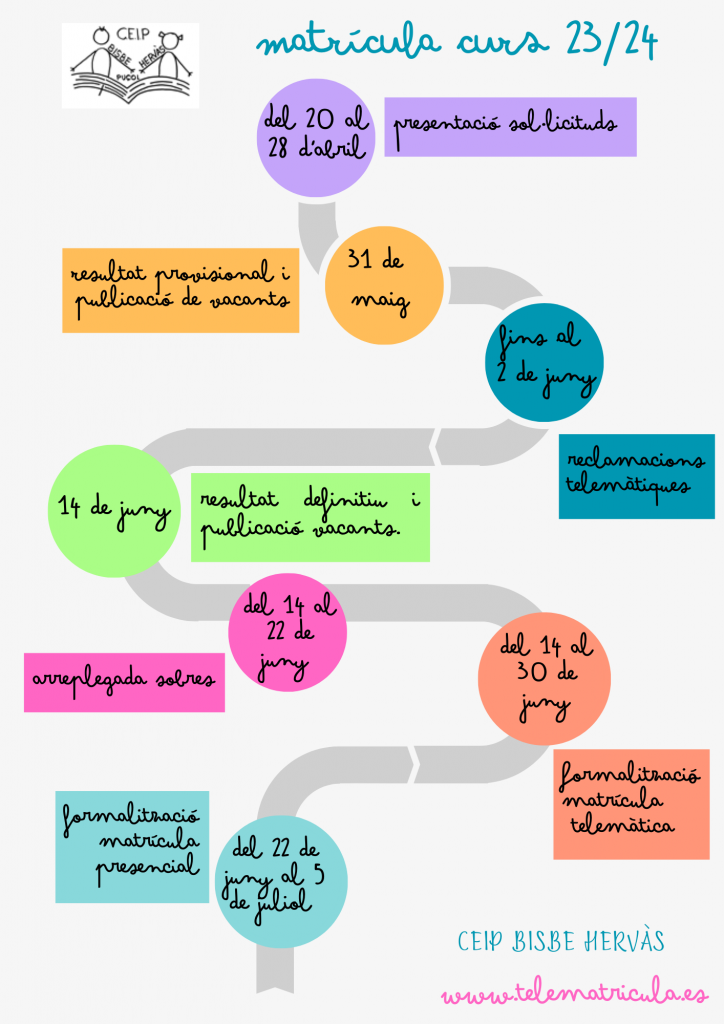 CEIP
BISBE HERVÀS
PUÇOL
matrícula curs 23/24
del 20 al
28 d'abril
presentació sol·licituds
31 de
maig
resultat provisional i
publicació de vacants
fins al
2 de juny
reclamacions
telemàtiques
14 de juny
resultat definitiu i
publicació vacants.
del 14 al
22 de
juny
arreplegada sobres
del 14 al
30 de
juny
formalització
matrícula
telemàtica
formalització
matrícula
presencial
del 22 de
juny al 5
de juliol
CEIP BISBE HERVÀS
www.telematricula.es